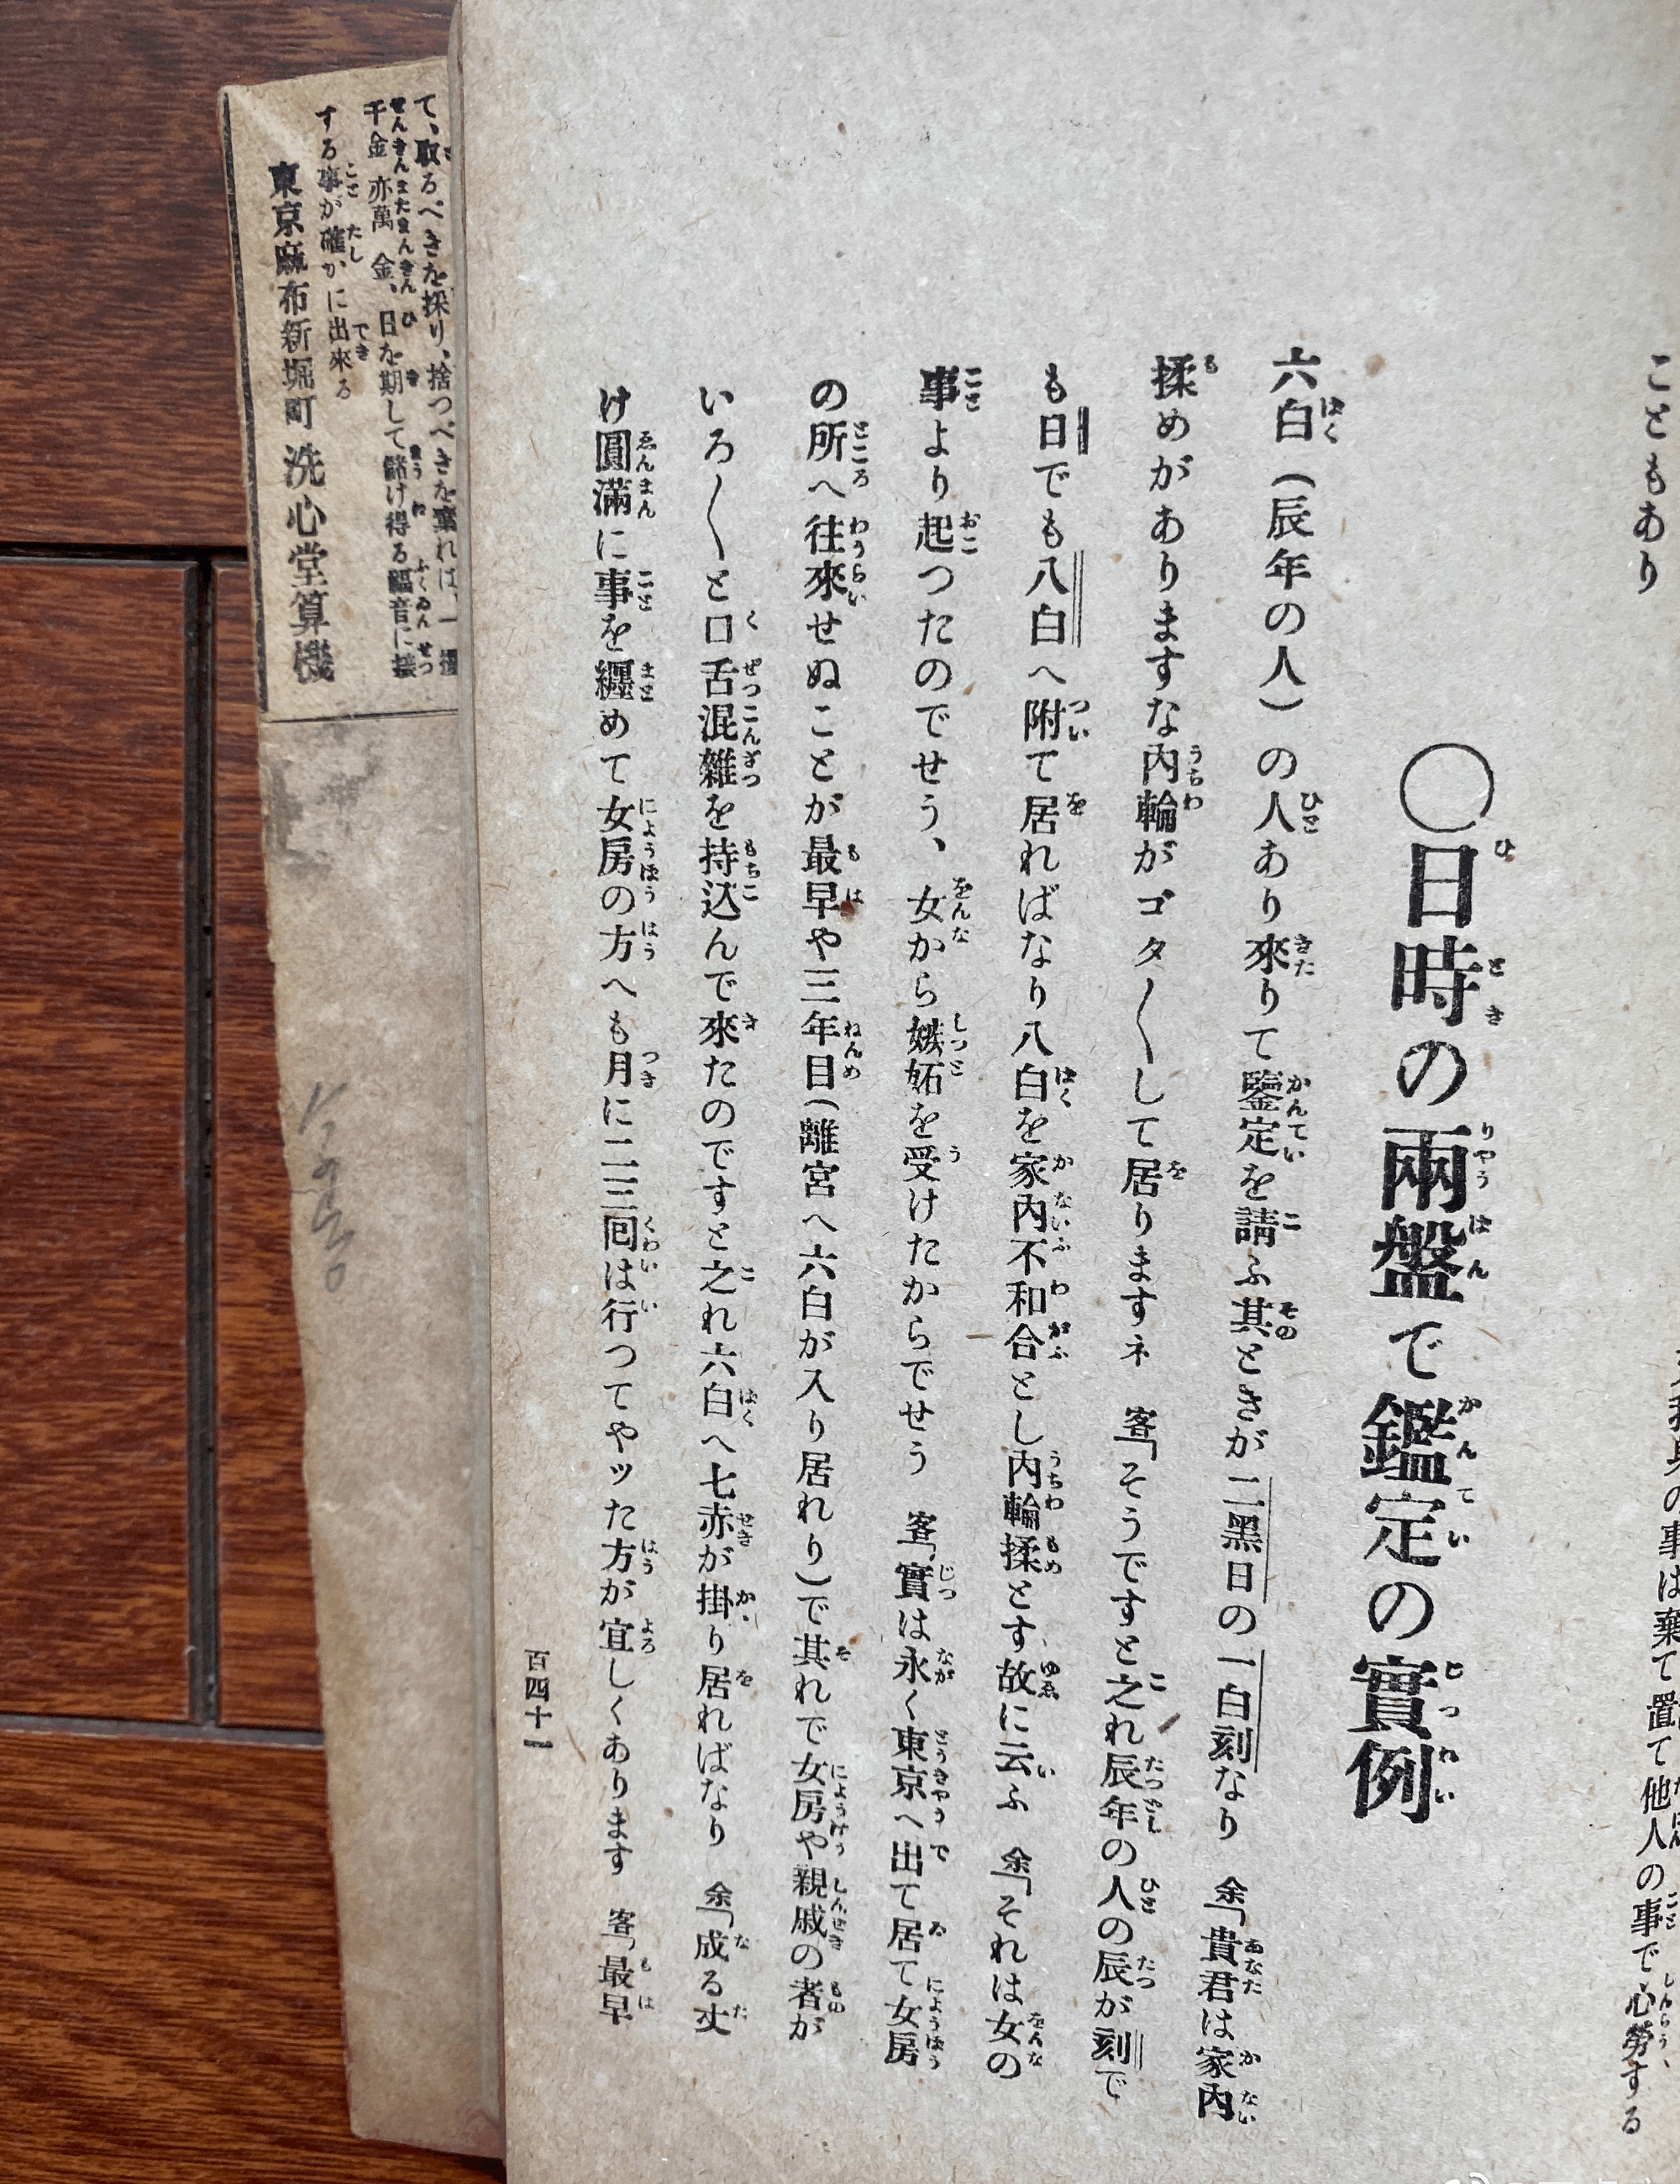 こともあり
の事は棄て置て他人の事で心勞する
〇日時の兩盤で鑑定の實例
六白(辰年の人)の人あり來りて鑒定を請ふ其ときが二黑日の一白刻なり 余「貴君は家內
揉めがありますな內輪がゴタ〱して居りますネ 客「そうですと之れ辰年の人の辰が刻で
も日でも八白へ附て居ればなり八白を家內不和合とし內輪揉とす故に云ふ 余「それは女の
事より起つたのでせう、女から嫉妬を受けたからでせう 客「實は永く東京へ出て居て女房
の所へ往來せぬことが最早や三年目(離宮へ六白が入り居れり)で其れで女房や親戚の者が
いろ〱と口舌混雜を持込んで來たのですと之れ六白へ七赤が掛り居ればなり 余「成る丈
け圓滿に事を纏めて女房の方へも月に二三回は行つてやッた方が宜しくあります 客「最早
百四十一
て、取るべきを採り、捨つべきを棄れば、一
千金亦萬金、日を期して儲け得る福音に接
する事が確かに出來る
東京麻布新堀町 洗心堂算機